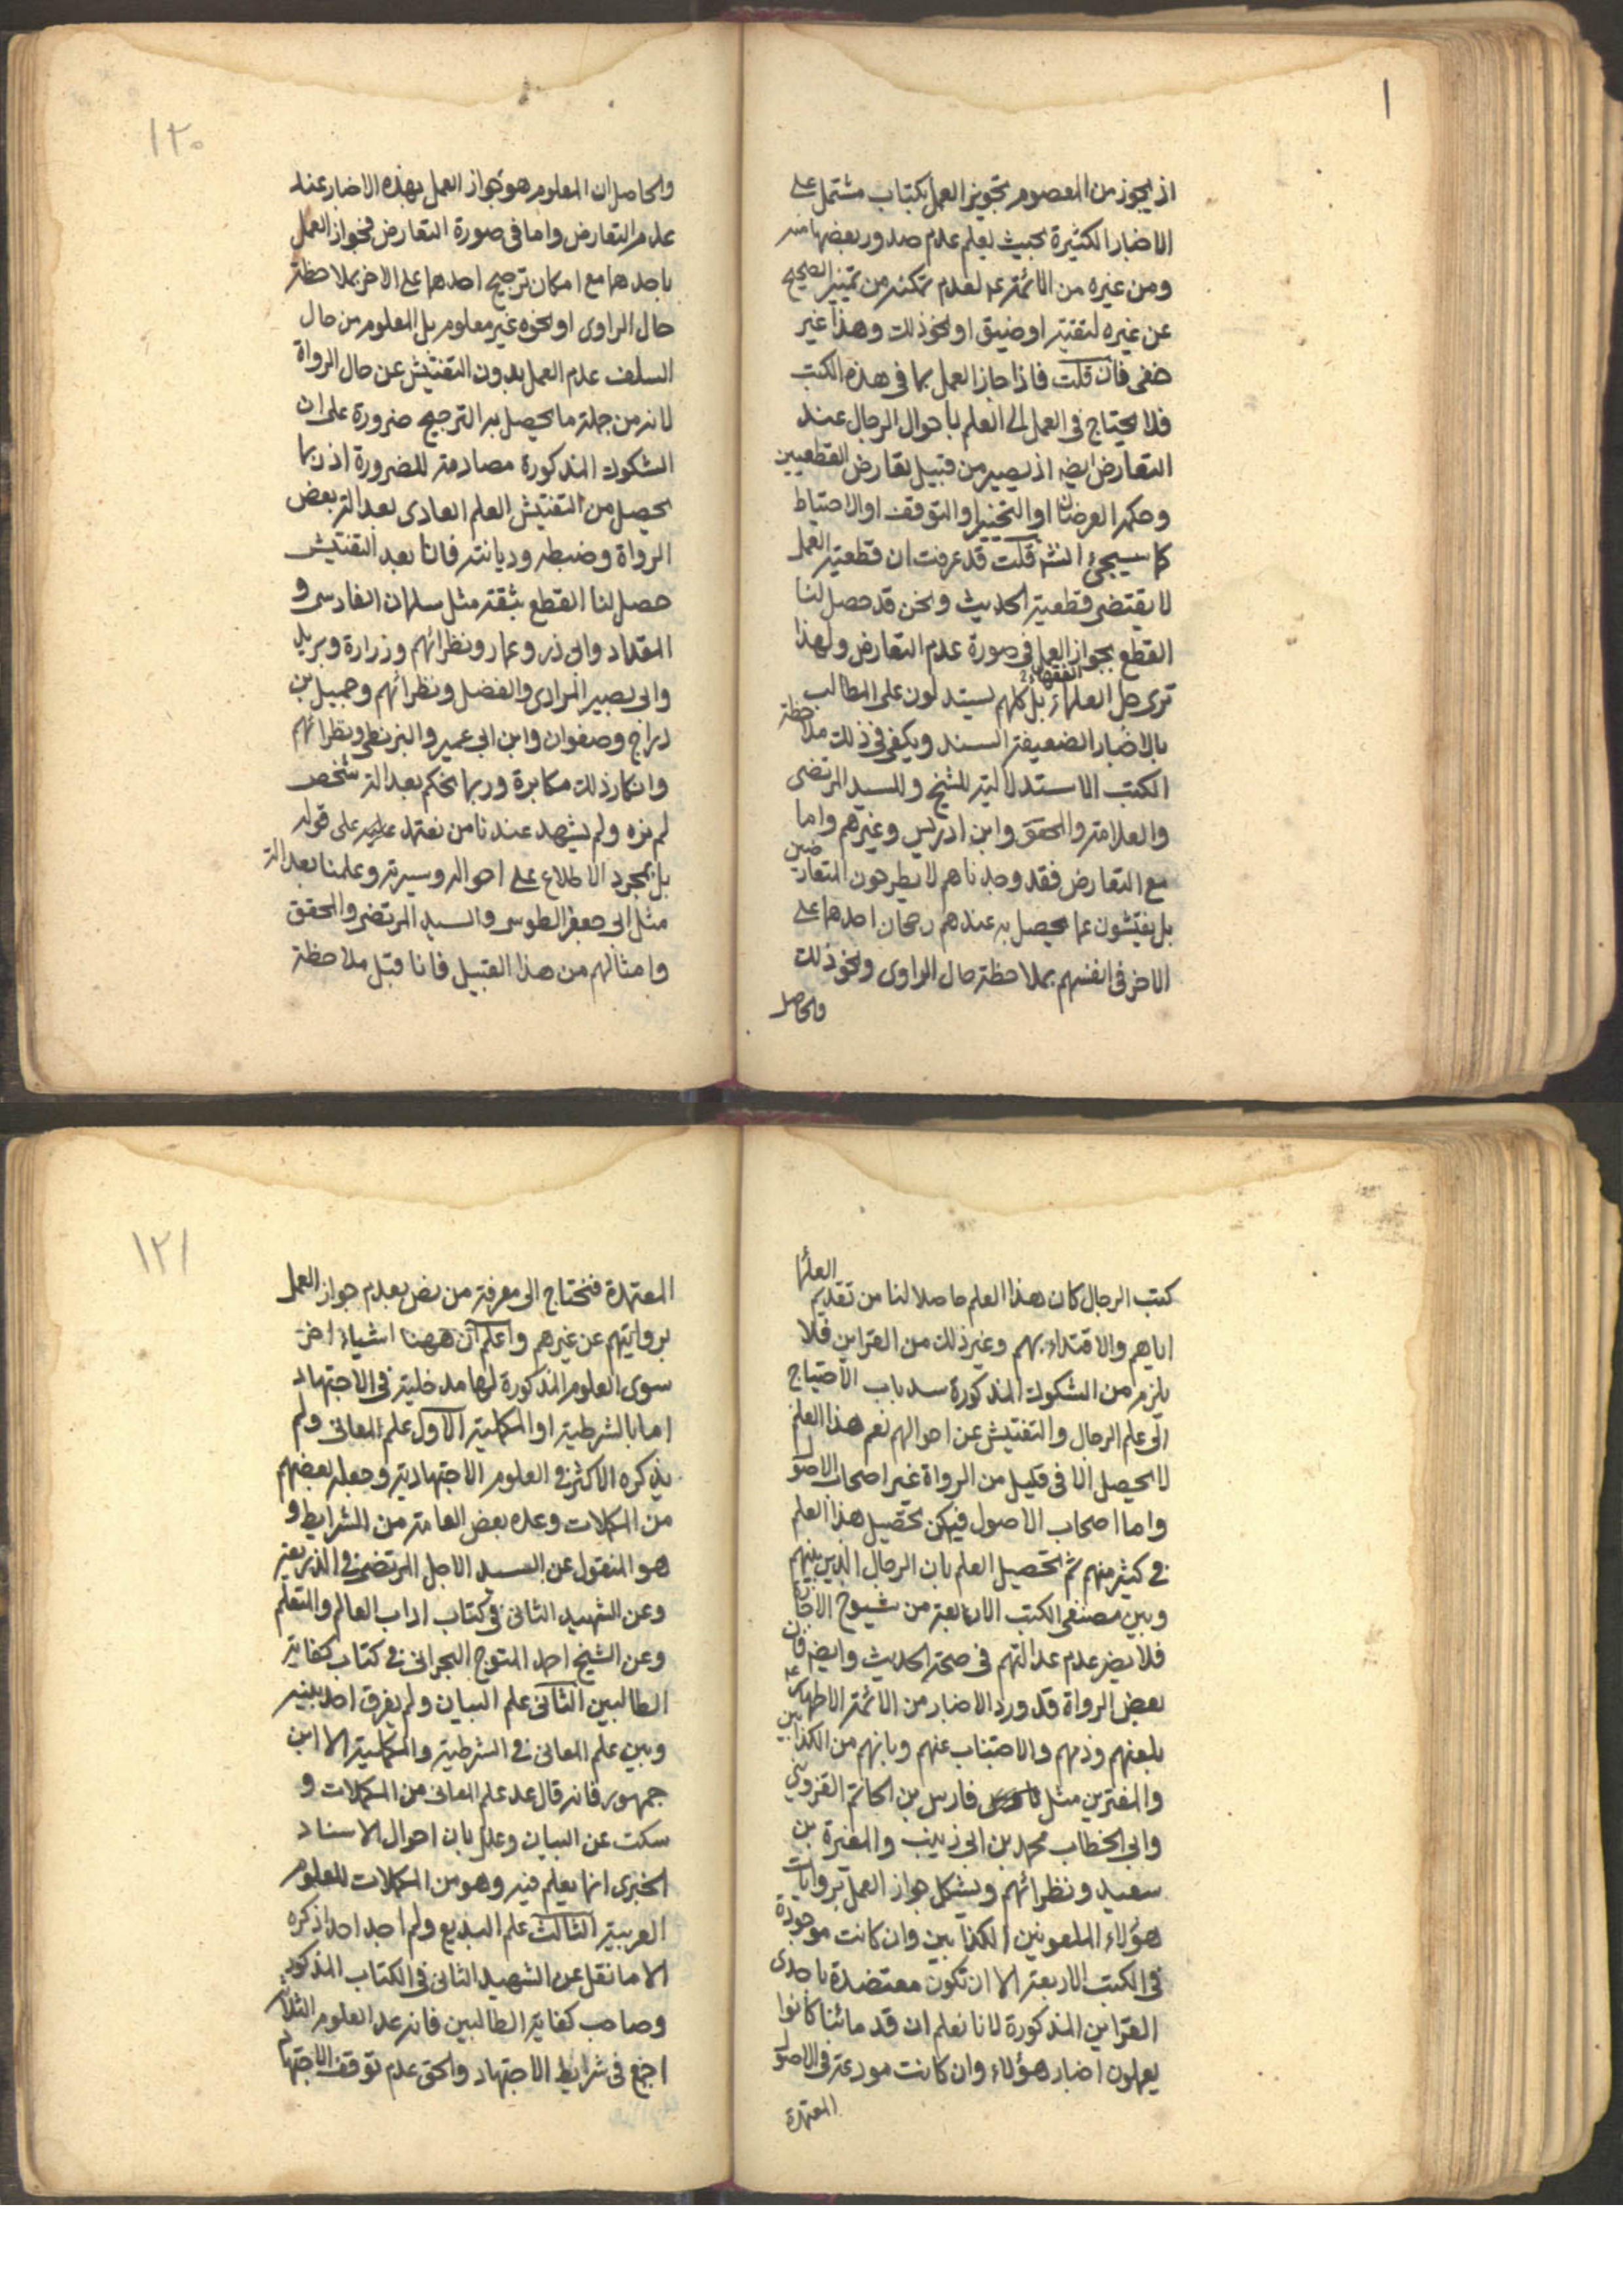 اذ يجوز من المعصوم تجويز العمل بكتاب مشتمل على
الاخبار الكثيرة بحيث يعلم عدم صدور بعضها منه
ومن غيره من الائمة ع لعدم تمكنه من تمييز الصحيح
عن غيره لتقية او ضيق او نحو ذلك وهذا غير
خفى فان قلت فاذا جاز العمل بما فى هذه الكتب
فلا يحتاج فى العمل الى العلم باحوال الرجال عند
التعارض ايضه اذ يصير من قبيل تعارض القطعيين
وحكمه العرضان او التخيير او التوقف او الاحتياط
كما سيجئ انشه قلت قد عرفت ان قطعية العمل
لا يقتضى قطعية الحديث ونحن قد حصل لنا
القطع بجواز العمل فى صورة عدم التعارض ولهذا
الفقهاء
ترى جل العلماء بل كلهم يستدلون على المطالب
بالاخبار الضعيفة السند ويكفى فى ذلك ملاحظة
الكتب الاستدلالية للشيخ وللسيد المرتضى
والعلامة والمحقق وابن ادريس وغيرهم واما
مع التعارض فقد وجدناهم لا يطرحون المتعارضين
بل يفتشون عما يحصل به عندهم رجحان احدهما على
الاخر فى انفسهم بملاحظة حال الراوى ونحو ذلك
والحاصل
١٢٠
والحاصل ان المعلوم هو جواز العمل بهذه الاخبار عند
عدم التعارض واما فى صورة التعارض فجواز العمل
باحدهما مع امكان ترجيح احدهما على الاخر بملاحظة
حال الراوى او نحوه غير معلوم بل المعلوم من حال
السلف عدم العمل بدون التفتيش عن حال الرواة
لانه من جملة ما يحصل به الترجيح ضرورة على ان
الشكوك المذكورة مصادمة للضرورة اذ ربما
يحصل من التفتيش العلم العادى بعدالة بعض
الرواة وضبطه وديانته فانا بعد التفتيش
حصل لنا القطع بثقة مثل سلمان الفارسى و
المقداد وابى ذر وعمار ونظرائهم وزرارة وبريد
وابى بصير المرادى والفضل ونظرائهم وجميل بن
دراج وصفوان وابن ابى عمير والبزنطى ونظرائهم
وانكار ذلك مكابرة وربما نحكم بعدالة شخص
لم نره ولم يشهد عندنا من نعتمد عليه على قوله
بل بمجرد الاطلاع على احواله وسيرته وعلمنا بعدالة
مثل ابى جعفر الطوسى والسيد المرتضى والمحقق
وامثالهم من هذا القبيل فانا قبل ملاحظة
كتب الرجال كان هذا العلم حاصلا لنا من تقديم العلماء
اياهم والاقتداء بهم وغير ذلك من القراين فلا
يلزم من الشكوك المذكورة سد باب الاحتياج
الى علم الرجال والتفتيش عن احوالهم نعم هذا العلم
لا يحصل الا فى قليل من الرواة غير اصحاب الاصول
واما اصحاب الاصول فيمكن تحصيل هذا العلم
فى كثير منهم ثم تحصيل العلم بان الرجال الذين بينهم
وبين مصنفى الكتب الاربعة من شيوخ الاجازة
فلا يضر عدم عدالتهم فى صحة الحديث وايضه فان
بعض الرواة قد ورد الاخبار من الائمة الاطهار ع
بلعنهم وذمهم والاجتناب عنهم وبانهم من الكذابين
والمفترين مثل فارس بن الحاتم القزوينى
وابى الخطاب محمد بن ابى زينب والمغيرة بن
سعيد ونظرائهم ويشكل جواز العمل بروايات
هؤلاء الملعونين الكذابين وان كانت موجودة
فى الكتب الاربعة الا ان تكون معتضدة باحدى
القراين المذكورة لانا نعلم ان قدمائنا كانوا
يعملون اخبار هؤلاء وان كانت مودعة فى الاصول
المعتمدة
١٢١
المعتمدة فنحتاج الى معرفة من نص بعدم جواز العمل
بروايتهم عن غيرهم واعلم ان ههنا اشياء اخر
سوى العلوم المذكورة لها مدخلية فى الاجتهاد
اما بالشرطية او المكملية الاول علم المعانى ولم
يذكره الاكثر فى العلوم الاجتهادية وجعله بعضهم
من المكملات وعده بعض العامة من الشرايط و
هو المنقول عن السيد الاجل المرتضى فى الذريعة
وعن الشهيد الثانى فى كتاب اداب العالم والمتعلم
وعن الشيخ احمد المتوج البحرانى فى كتاب كفاية
الطالبين الثانى علم البيان ولم يفرق احد بينه
وبين علم المعانى فى الشرطية والمكملية الا ابن
جمهور فانه قال عد علم المعانى من المكملات و
سكت عن البيان وعلل بان احوال الاسناد
الخبرى انما يعلم فيه وهو من المكملات للعلوم
العربية الثالث علم البديع ولم اجد احدا ذكره
الا ما نقل عن الشهيد الثانى فى الكتاب المذكور
وصاحب كفاية الطالبين فانه عد العلوم الثلاثة
اجمع فى شرايط الاجتهاد والحق عدم توقف الاجتهاد